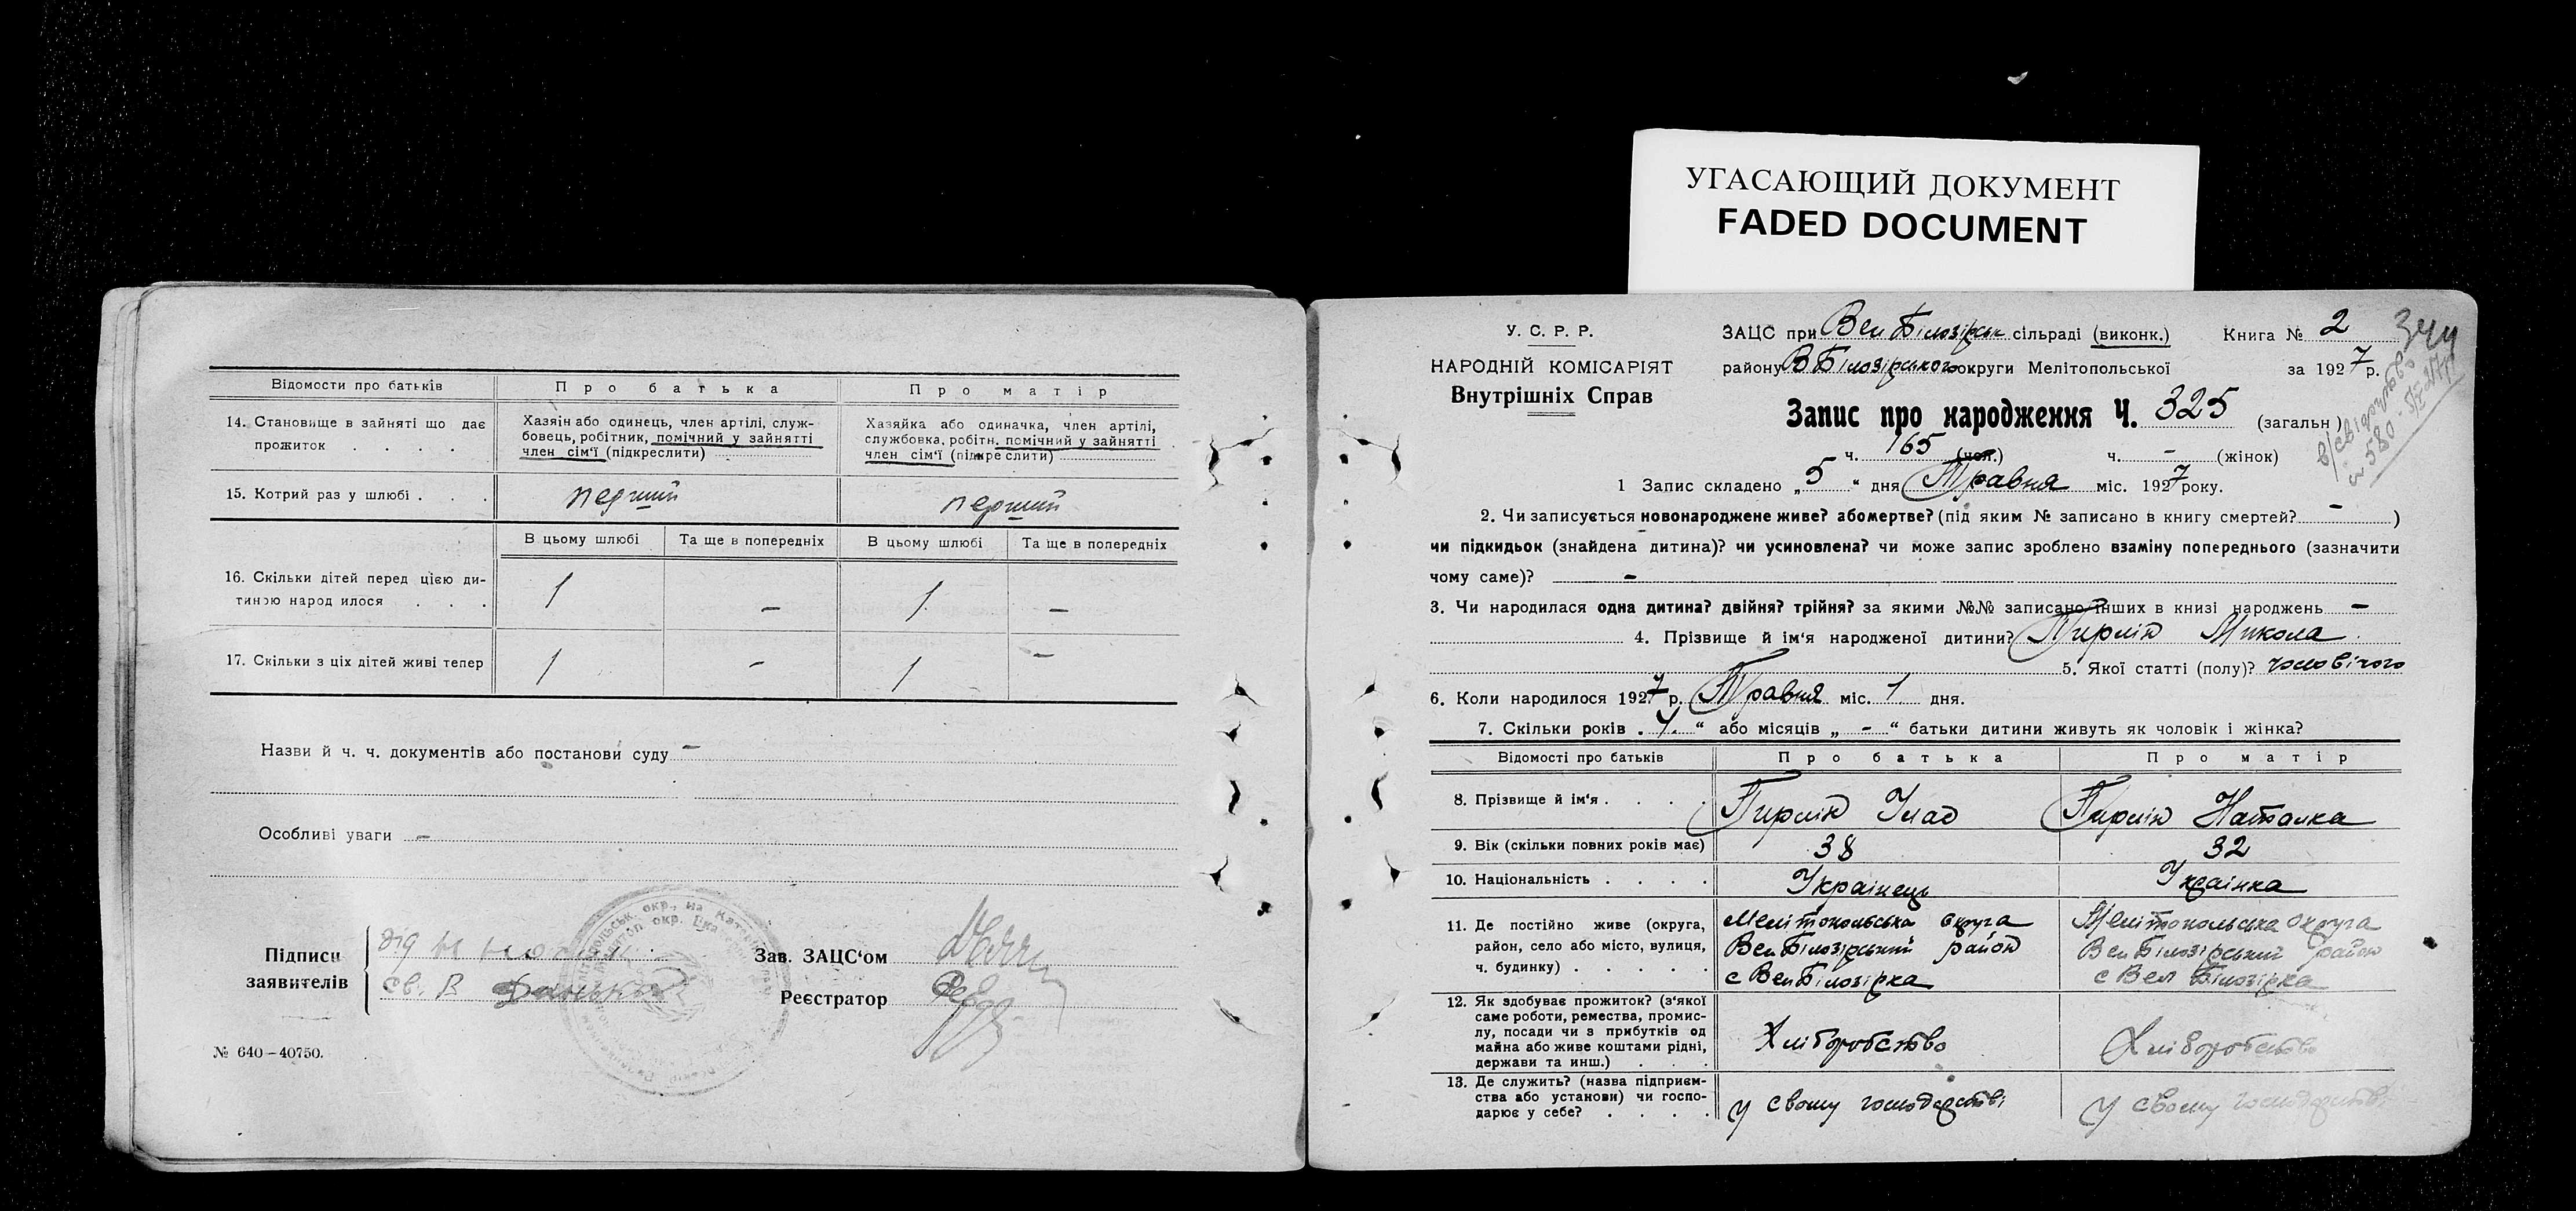 УГАСАЮЩИЙ ДОКУМЕНТ
FADED DOCUMENT
Відомости про батьків
Про батька
Про матір
14. Становище в зайняті що дає прожиток . . . .
Хазяїн або одинець, член артілі, служ-
бовець, робітник, помічний у зайнятті
член сім'ї (підкреслити)
Хазяйка або одиначка, член артілі,
службовка, робітн. помічний у зайнятті
член сім'ї (підкреслити)
15. Котрий раз у шлюбі . . .
перший
перший
В цьому шлюбі
Та ще в попередніх
В цьому шлюбі
Та ще в попередніх
16. Скільки дітей перед цією ди-
тиною народилося . . .
1 – 1 –
17. Скільки з ціх дітей живі тепер
1 – 1 –
Назви й ч. ч. документів або постанови суду –
Особливі уваги –
Підписи
заявителів
св. В
Зав. ЗАЦС'ом
Реєстратор
№ 640–40750.
У. С. Р. Р.
НАРОДНІЙ КОМІСАРІЯТ
Внутрішніх Справ
ЗАЦС при Вел Білозірськ сільраді (виконк.) Книга № 2
344
району В Білозірського округи Мелітопольської за 1927 р.
Запис про народження Ч. 325 (загальн)
ч. 165 (чол.) ч. - (жінок)
в/свідоцтво
№ 580
1 Запис складено „5“ дня Травня міс. 1927 року.
2. Чи записується новонароджене живе? або мертве? (під яким № записано в книгу смертей? – )
чи підкидьок (знайдена дитина)? чи усиновлена? чи може запис зроблено взаміну попереднього (зазначити
чому саме)? –
3. Чи народилася одна дитина? двійня? трійня? за якими №№ записано інших в книзі народжень –
4. Прізвище й ім'я народженої дитини? Пирлік Микола
5. Якої статті (полу)? чоловічого
6. Коли народилося 1927 р. Травня міс. 1 дня.
7. Скільки років . 4. “ або місяців „ - “ батьки дитини живуть як чоловік і жінка?
Відомості про батьків
Про батька
Про матір
8. Прізвище й ім'я . . . .
Пирлік Улас
Пирлік Наталка
9. Вік (скільки повних років має)
38
32
10. Національність . . . .
Українець
Українка
11. Де постійно живе (округа,
район, село або місто, вулиця,
ч. будинку) . . . . .
Мелітопольська округа
Вел Білозірський район
с Вел Білозірка
Мелітопольська округа
Вел Білозірський район
с Вел Білозірка
12. Як здобуває прожиток? (з'якої
саме роботи, ремества, промис-
лу, посади чи з прибутків од
майна або живе коштами рідні,
держави та инш.) . . .
Хліборобство
Хліборобство
13. Де служить? (назва підприєм-
ства або установи) чи госпо-
дарює у себе? . . . .
у свому господарстві
у свому господарстві